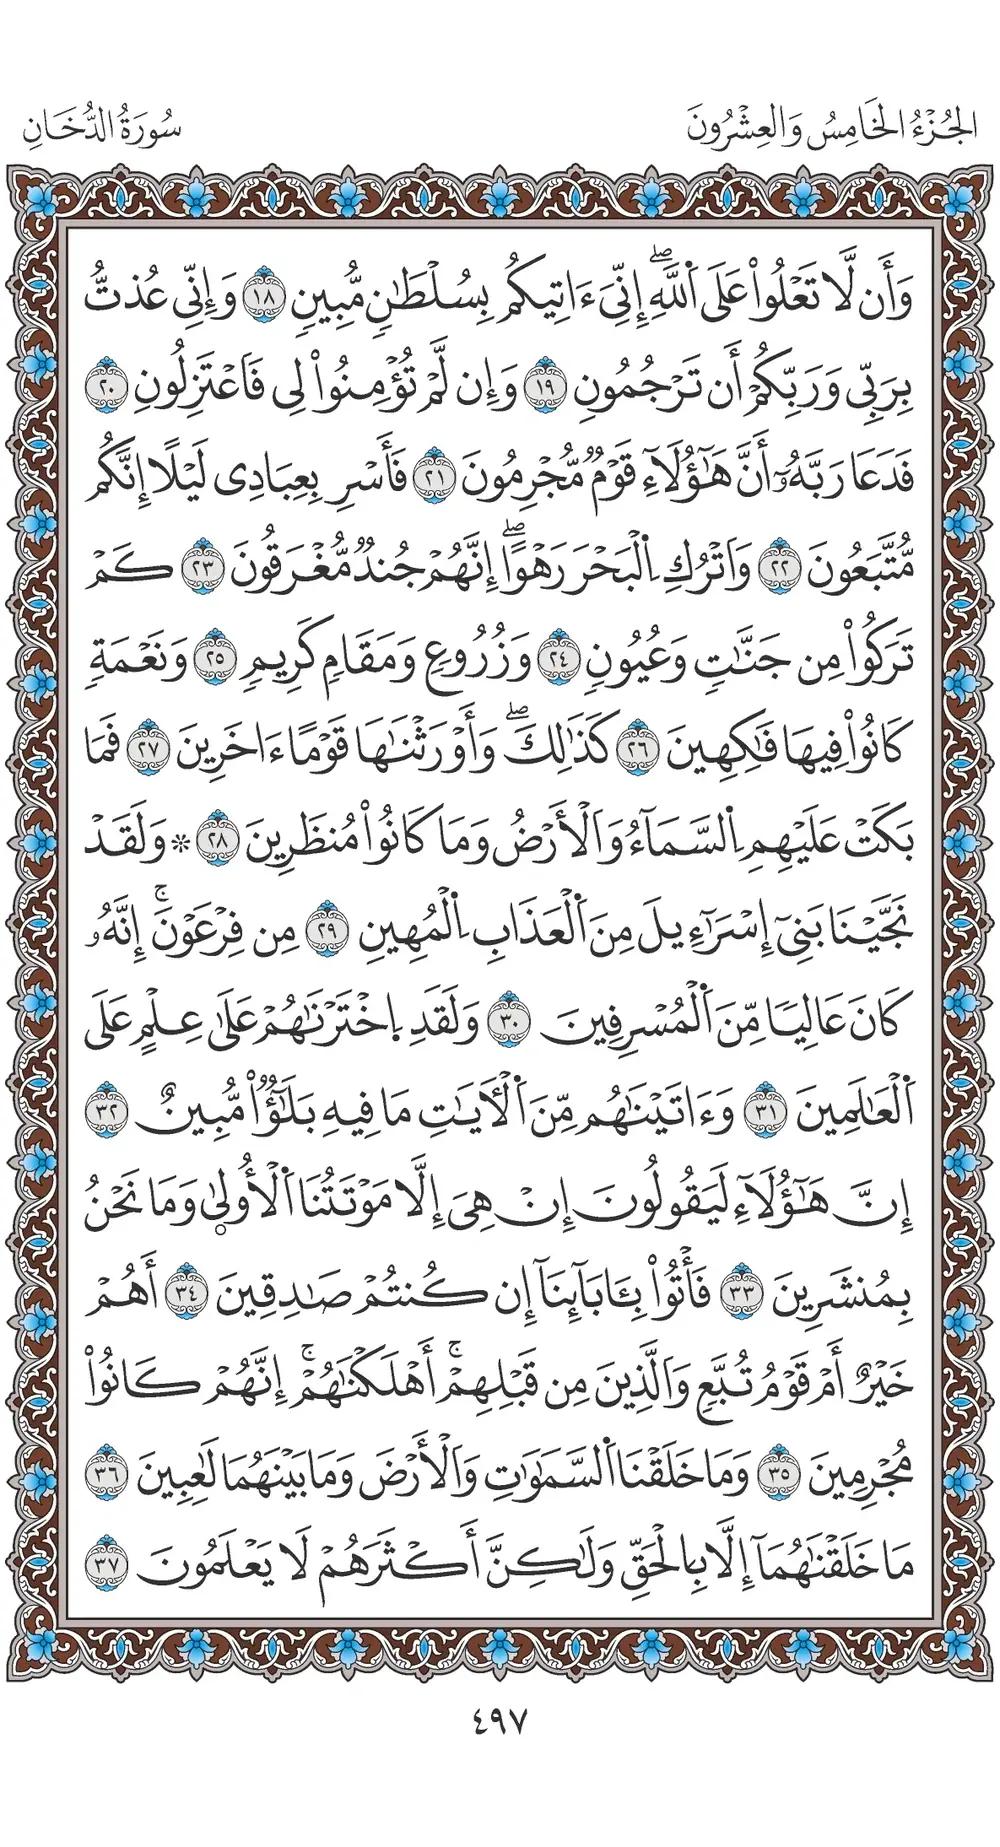 الجُزْءُ الخَامِسُ وَالعِشْرُونَ
سُورَةُ الدُّخَانِ
وَأَن لَّا تَعْلُوا۟ عَلَى اَ۬للَّهِۖ إِنِّيَ ءَاتِيكُم بِسُلْطَٰنٖ مُّبِينٖ ١٨ وَإِنِّي عُذتُّ
بِرَبِّي وَرَبِّكُمْ أَن تَرْجُمُونِ ١٩ وَإِن لَّمْ تُؤْمِنُوا۟ لِي فَاعْتَزِلُونِ ٢٠
فَدَعَا رَبَّهُۥٓ أَنَّ هَٰٓؤُلَآءِ قَوْمٞ مُّجْرِمُونَ ٢١ فَأَسْرِ بِعِبَادِي لَيْلًا إِنَّكُم
مُّتَّبَعُونَ ٢٢ وَاتْرُكِ اِ۬لْبَحْرَ رَهْوًاۖ إِنَّهُمْ جُندٞ مُّغْرَقُونَ ٢٣ كَمْ
تَرَكُوا۟ مِن جَنَّٰتٖ وَعُيُونٖ ٢٤ وَزُرُوعٖ وَمَقَامٖ كَرِيمٖ ٢٥ وَنَعْمَةٖ
كَانُوا۟ فِيهَا فَٰكِهِينَ ٢٦ كَذَٰلِكَۖ وَأَوْرَثْنَٰهَا قَوْمًا ءَاخَرِينَ ٢٧ فَمَا
بَكَتْ عَلَيْهِمِ اِ۬لسَّمَآءُ وَالْأَرْضُ وَمَا كَانُوا۟ مُنظَرِينَ ٢٨ ۞ وَلَقَدْ
نَجَّيْنَا بَنِيٓ إِسْرَٰٓءِيلَ مِنَ اَ۬لْعَذَابِ اِ۬لْمُهِينِ ٢٩ مِن فِرْعَوْنَۚ إِنَّهُۥ
كَانَ عَالِيٗا مِّنَ اَ۬لْمُسْرِفِينَ ٣٠ وَلَقَدِ اِ۪خْتَرْنَٰهُمْ عَلَىٰ عِلْمٍ عَلَى
اَ۬لْعَٰلَمِينَ ٣١ وَءَاتَيْنَٰهُم مِّنَ اَ۬لْأٓيَٰتِ مَا فِيهِ بَلَٰٓؤٞا۟ مُّبِينٌ ٣٢
إِنَّ هَٰٓؤُلَآءِ لَيَقُولُونَ إِنْ هِيَ إِلَّا مَوْتَتُنَا اَ۬لْأُولۭىٰ وَمَا نَحْنُ
بِمُنشَرِينَ ٣٣ فَأْتُوا۟ بِـَٔابَآئِنَآ إِن كُنتُمْ صَٰدِقِينَ ٣٤ أَهُمْ
خَيْرٌ أَمْ قَوْمُ تُبَّعٖ وَالَّذِينَ مِن قَبْلِهِمْۚ أَهْلَكْنَٰهُمْۚ إِنَّهُمْ كَانُوا۟
مُجْرِمِينَ ٣٥ وَمَا خَلَقْنَا اَ۬لسَّمَٰوَٰتِ وَالْأَرْضَ وَمَا بَيْنَهُمَا لَٰعِبِينَ ٣٦
مَا خَلَقْنَٰهُمَآ إِلَّا بِالْحَقِّ وَلَٰكِنَّ أَكْثَرَهُمْ لَا يَعْلَمُونَ ٣٧
٤٩٧